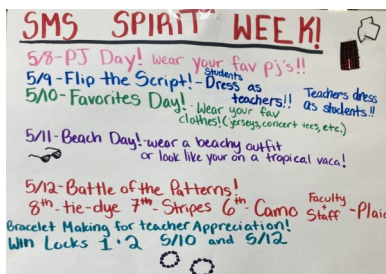 SMS SPIRIT WEEK!
5/8-PJ Day! wear your fav pj's!!
5/9-Flip the Script!-Students Dress as teachers!! Teachers dress as students!!
5/10-Favorites Day!-Wear your fav
clothes! (jerseys, concert tees, etc.)
5/11-Beach Day!-wear a beachy outfit
or look like your on a tropical vaca!
5/12-Battle of the Patterns!
8th-tie-dye 7th-Stripes 6th-Camo Faculty + Staff-Plaid
Bracelet Making for teacher Appreciation!
Win Locks 1·2 5/10 and 5/12